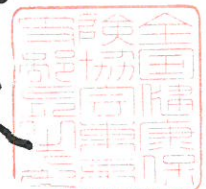 全国健康保
険協会東京
支部長之印